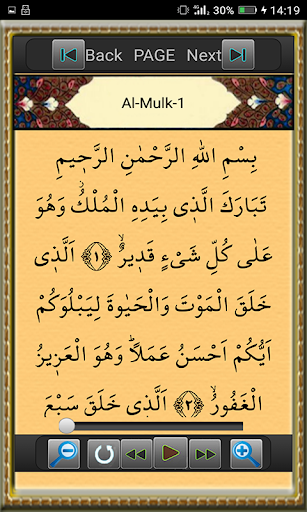 30% 14:19
Back PAGE Next
Al-Mulk-1
بِسْمِ اللهِ الرَّحْمٰنِ الرَّحٖيمِ
تَبَارَكَ الَّذٖى بِيَدِهِ الْمُلْكُۘ وَهُوَ
عَلٰى كُلِّ شَىْءٍ قَدٖيرٌۙ ﴿١﴾ اَلَّذٖى
خَلَقَ الْمَوْتَ وَالْحَيٰوةَ لِيَبْلُوَكُمْ
اَيُّكُمْ اَحْسَنُ عَمَلًاؕ وَهُوَ الْعَزٖيزُ
الْغَفُورُۙ ﴿٢﴾ اَلَّذٖى خَلَقَ سَبْعَ